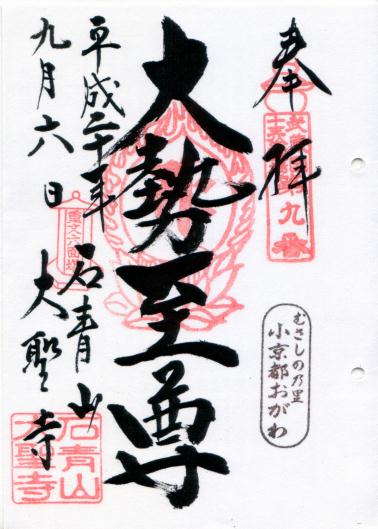 奉拝
九番
むさしの乃里
小京都おがわ
大勢至尊
平成二十年
九月六日
石青山
大聖寺
石青山
大聖寺